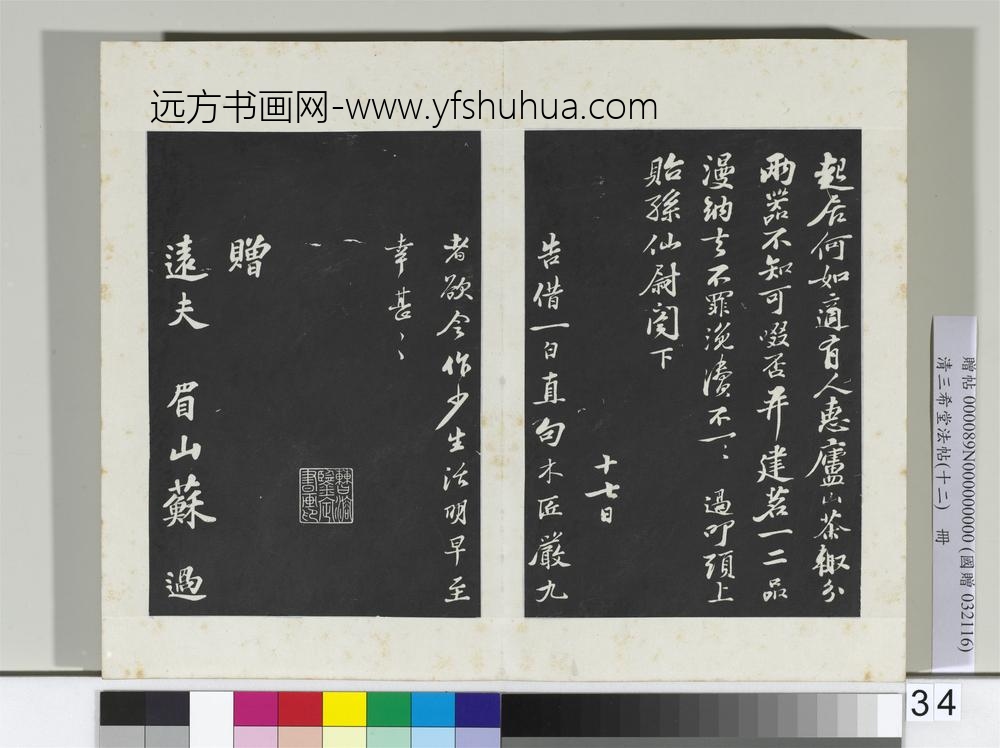 远方书画网-www.yfshuhua.com
起居何如適有人惠廬山茶輙分
兩器不知可啜否并建茗一二品
漫納去不罪浼瀆不一〻過叩頭上
貽孫仙尉閤下
十七日
告借一白直句木匠嚴九
者欲令作少生活明早至
幸甚〻
贈
遠夫 眉山蘇 過
贈帖 000089N000000000 (國贈 032116)
清三希堂法帖(十二) 冊
34